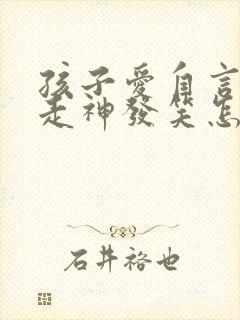 孩子愛自言
走神發笑怎
石井裕也